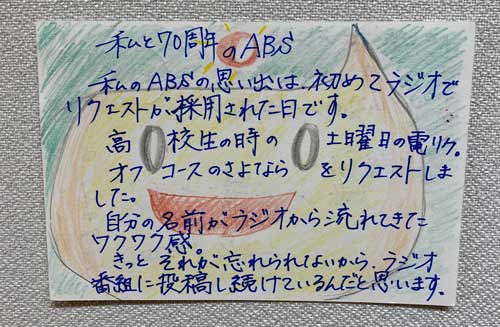 私と70周年のABS
私のABSの思い出は、初めてラジオで
リクエストが採用された日です。
高校生の時の土曜日の電リク。
オフコースのさよならをリクエストしま
した。
自分の名前がラジオから流れてきた
ワクワク感。
きっとそれが忘れられないから、ラジオ
番組に投稿し続けているんだと思います。